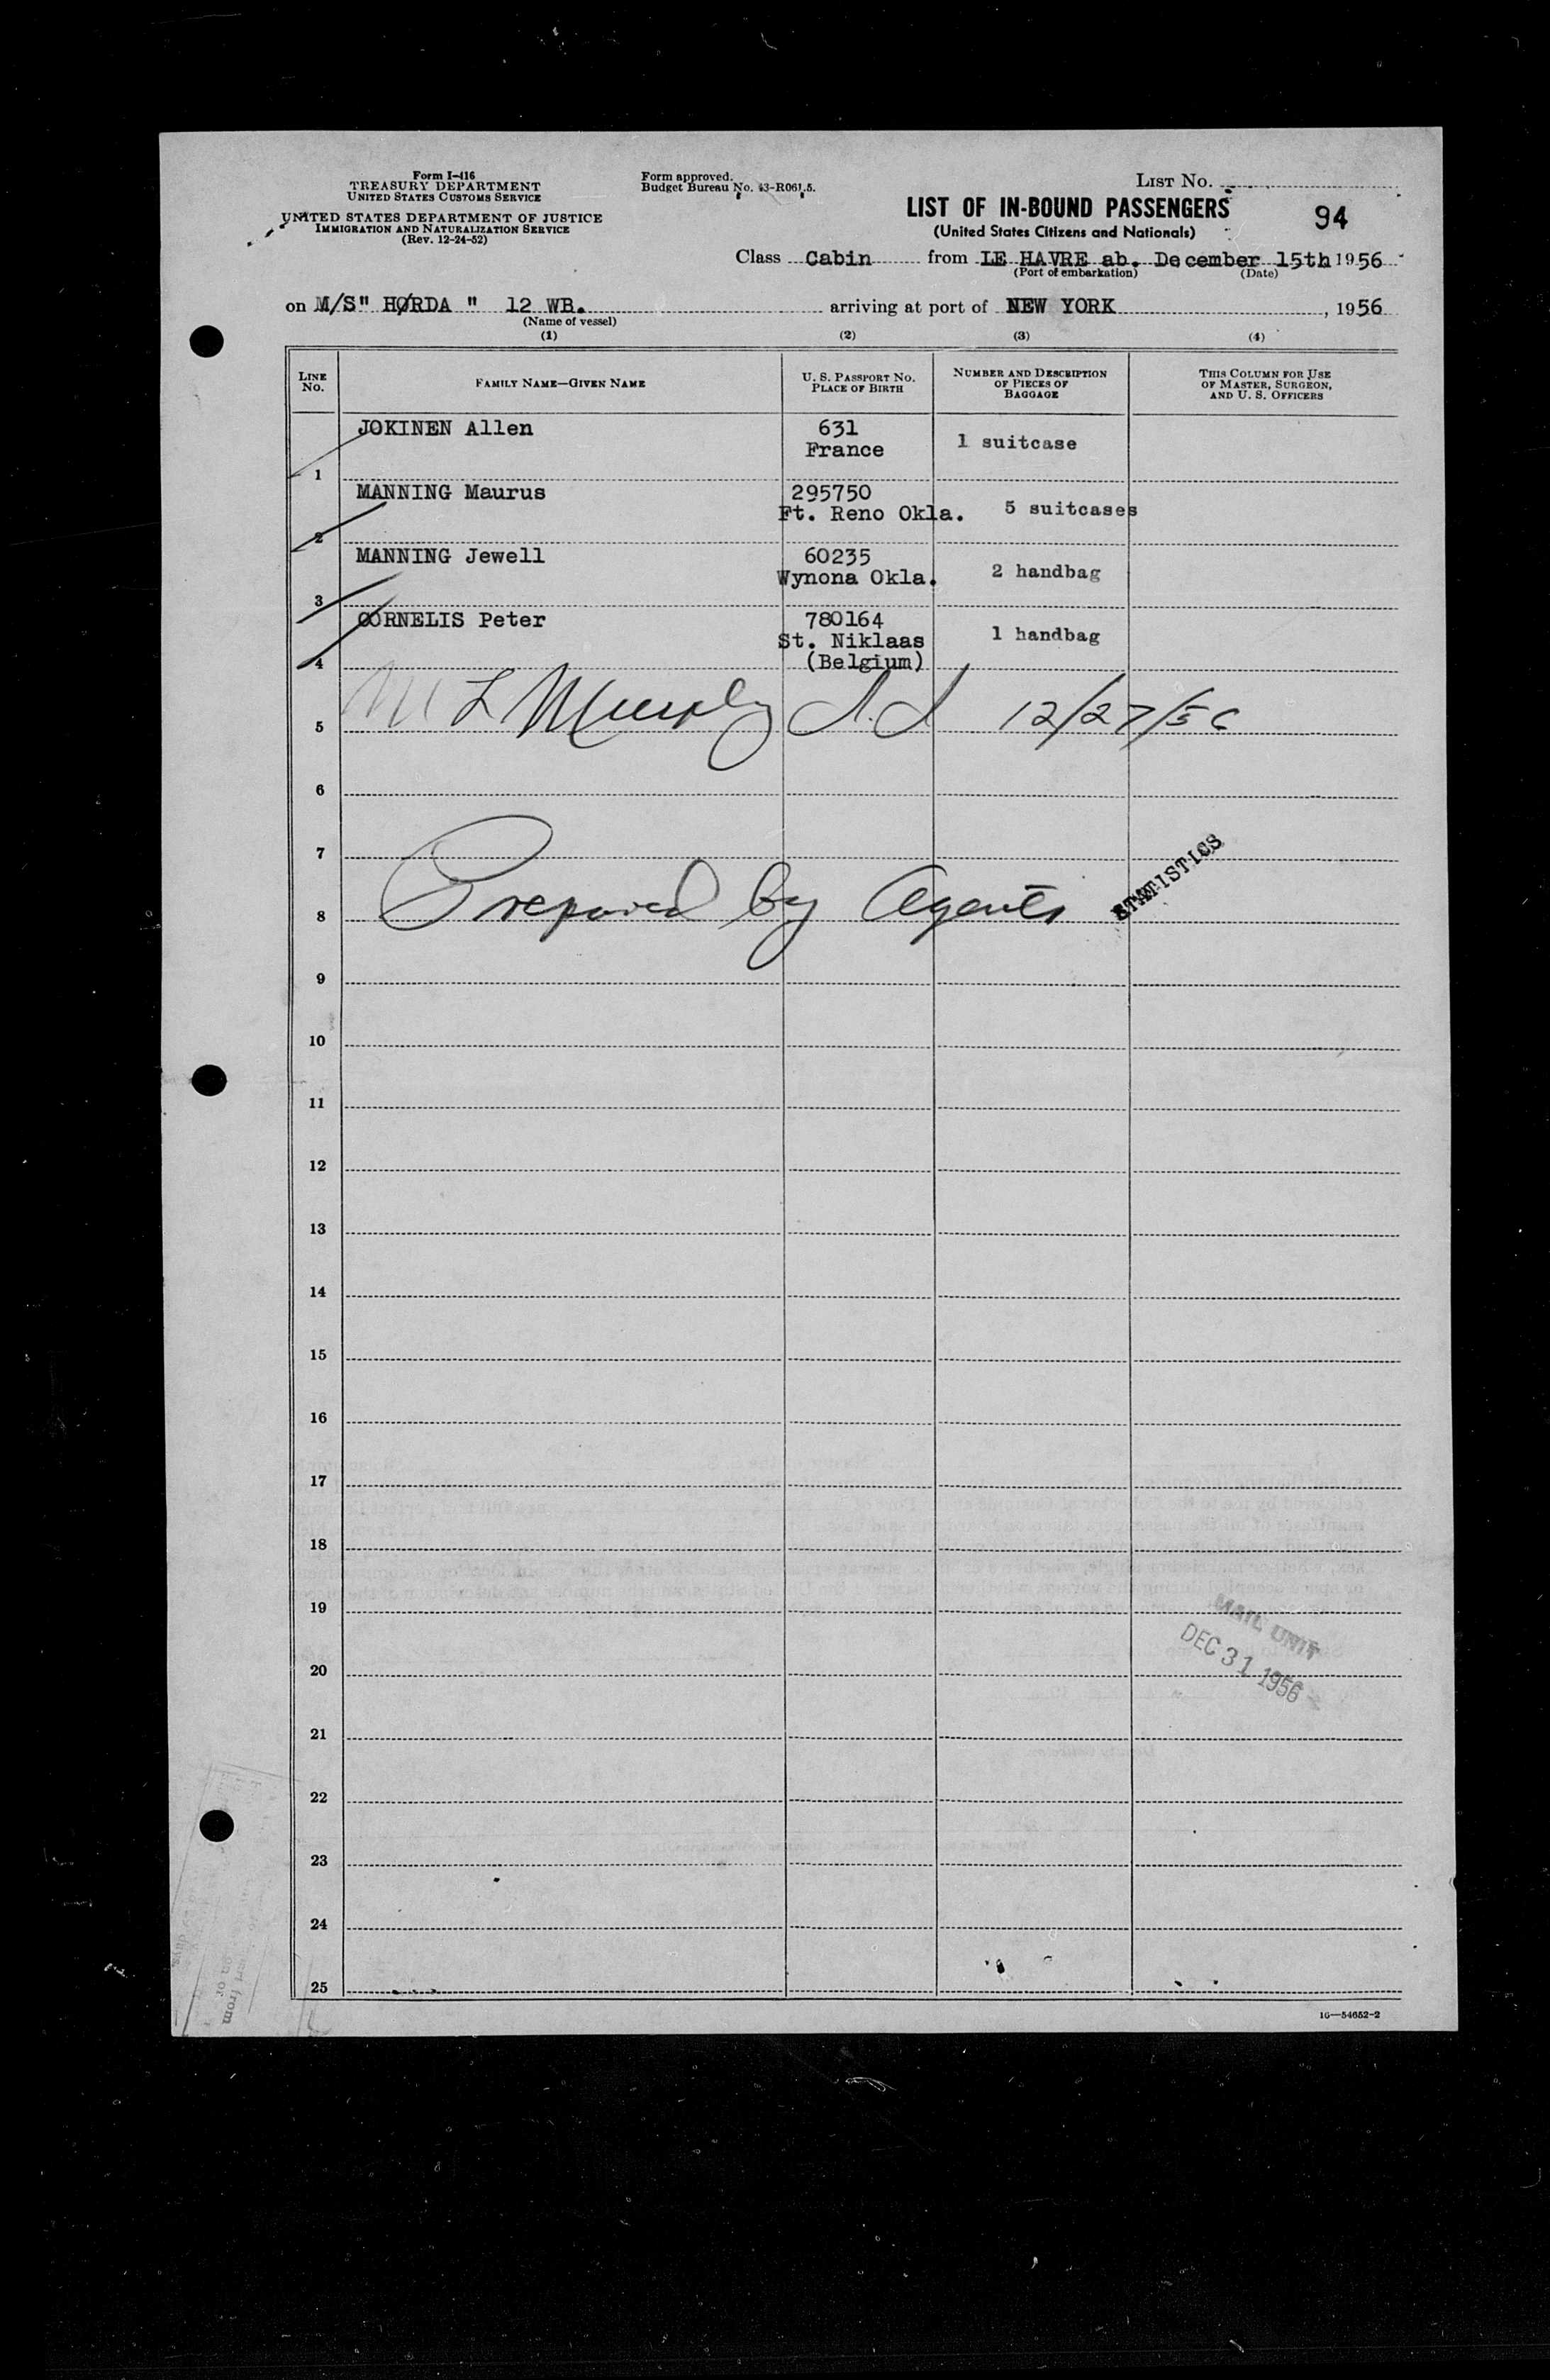 Form I-416
TREASURY DEPARTMENT
UNITED STATES CUSTOMS SERVICE
UNITED STATES DEPARTMENT OF JUSTICE
IMMIGRATION AND NATURALIZATION SERVICE
(Rev. 12-24-52)
Form approved.
Budget Bureau No. 43-R061.5.
LIST No.
LIST OF IN-BOUND PASSENGERS
(United States Citizens and Nationals)
94
Class Cabin from LE HAVRE ab. December 15th 1956
(Port of embarkation) (Date)
on M/S" HØRDA " 12 WB. arriving at port of NEW YORK, 1956
(Name of vessel)
(1) (2) (3) (4)
LINE NO. FAMILY NAME—GIVEN NAME U. S. PASSPORT NO. PLACE OF BIRTH NUMBER AND DESCRIPTION OF PIECES OF BAGGAGE THIS COLUMN FOR USE OF MASTER, SURGEON, AND U. S. OFFICERS
JOKINEN Allen 631
France 1 suitcase
1
MANNING Maurus 295750
Ft. Reno Okla. 5 suitcases
2
MANNING Jewell 60235
Wynona Okla. 2 handbag
3
CORNELIS Peter 780164
St. Niklaas 1 handbag
4 (Belgium)
5 M L Murphy 12/27/56
6
7
8 Prepared by Agents STATISTICS
9
10
11
12
13
14
15
16
17
18
19
MAIL UNIT
20 DEC 31 1956
21
22
23
24
25
16—54652-2